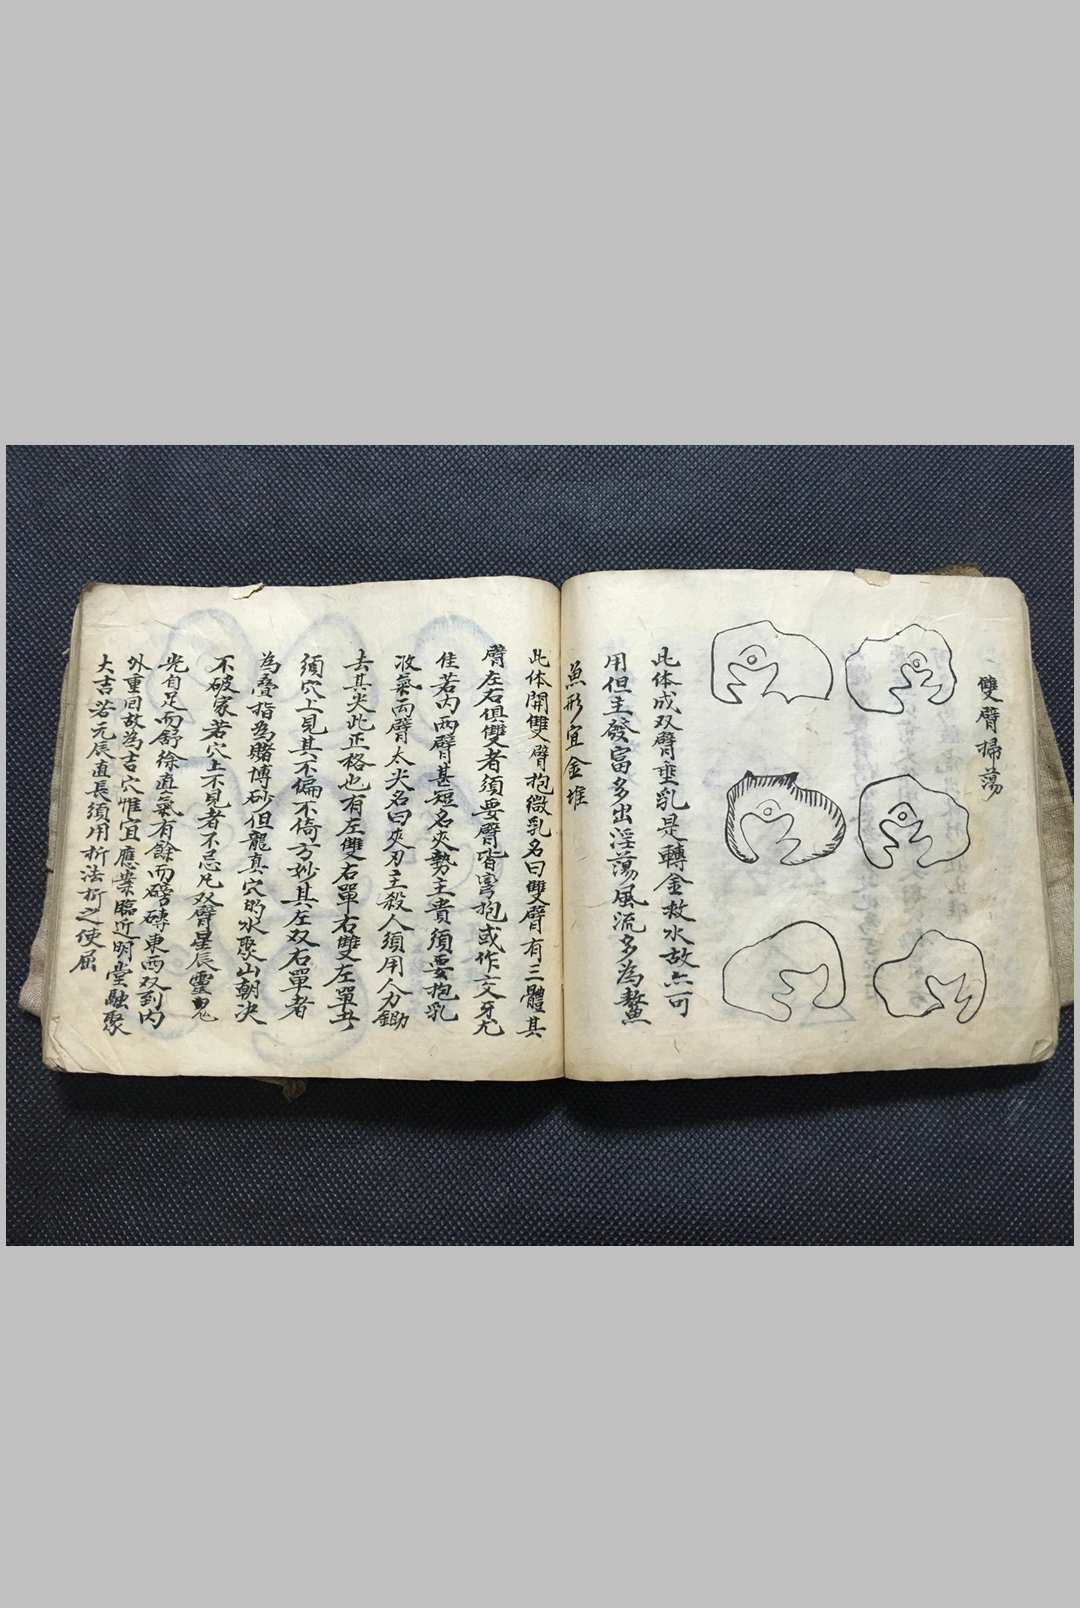 雙臂掃蕩
此体成双臂垂乳是轉金救水故亦可
用但主發富多出淫蕩風流多為螯
魚形宜金堆
此体開雙臂抱微乳名曰雙臂有三體其
臂左右俱雙者須要臂皆弯抱或作交牙尤
佳若内兩臂甚短名夾勢主貴須要抱乳
收氣兩臂太尖名曰夾刃主殺人須用人力鋤
去其尖此正格也有左雙右單右雙左單者
須穴上見其不偏不倚方妙其左双右單者
為叠指為賭博砂但龍真穴的水聚山朝决
不破家若穴上不見者不忌凡双臂星辰靈
光自足而舒徐直氣有餘而磅礡東西双到内
外重回故為吉穴惟宜應案臨近明堂融聚
大吉若元辰直長須用折法折之使屈